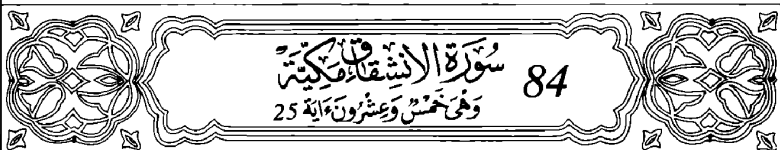 سُورَةُ الْانْشِقَاقِ مَكِّيَّةٌ 84
وَهْىَ خَمْسٌ وَعِشْرُونَ ءَايَة 25